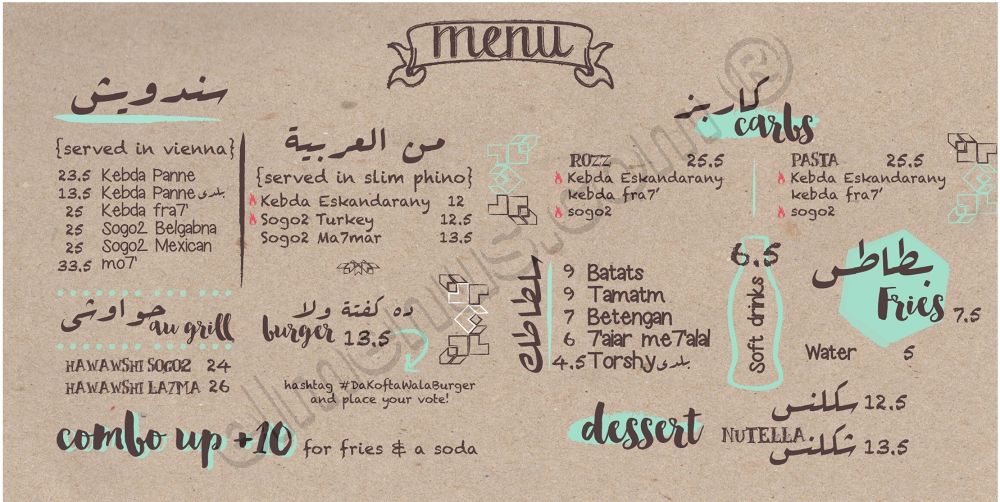 menu
سندويش
{served in vienna}
23.5 Kebda Panne
13.5 Kebda Panne بلدى
25 Kebda fra7'
25 Sogo2 Belgabna
25 Sogo2 Mexican
33.5 mo7'
من العربية
{served in slim phino}
Kebda Eskandarany 12
Sogo2 Turkey 12.5
Sogo2 Ma7mar 13.5
كاربز
carbs
ROZZ 25.5
Kebda Eskandarany
kebda fra7'
sogo2
PASTA 25.5
Kebda Eskandarany
kebda fra7'
sogo2
حواوشى au grill
HAWAWSHI SOGO2 24
HAWAWSHI LA7MA 26
ده كفتة ولا
burger 13.5
hashtag #DaKoftaWalaBurger
and place your vote!
سلطاطك
9 Batats
9 Tamatm
7 Betengan
6 7'aiar me7'alal
4.5 Torshy بلدى
6.5
Soft drinks
بطاطس
Fries 7.5
Water 5
combo up +10 for fries & a soda
dessert
سكلنس 12.5
NUTELLA شكلنس 13.5
elmenus.com ®